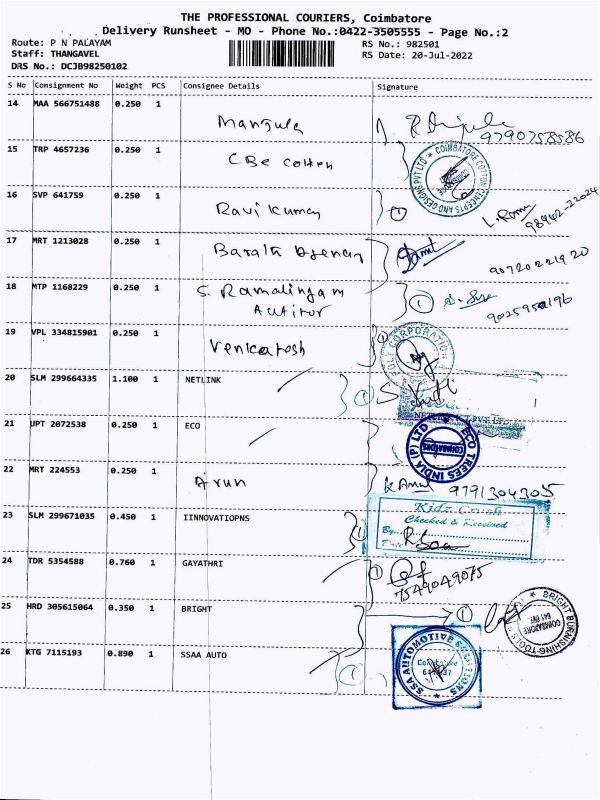 THE PROFESSIONAL COURIERS, Coimbatore
Delivery Runsheet - MO - Phone No.:0422-3505555 - Page No.:2
Route: P N PALAYAM RS No.: 982501
Staff: THANGAVEL RS Date: 20-Jul-2022
DRS No.: DCJB98250102
S No Consignment No Weight PCS Consignee Details Signature
14 MAA 566751488 0.250 1 Manjula
9790758586
15 TRP 4657236 0.250 1 CBE Cotten
COIMBATORE COTTON CONCEPTS AND DESIGNS PVT LTD
16 SVP 641759 0.250 1 Ravi Kumar
98942-22024
17 MRT 1213028 0.250 1 Barath Agency
90720221920
18 MTP 1168229 0.250 1 S. Ramalingam
Auditor
19 VPL 334815901 0.250 1 Venkatesh
CORPORATION
20 SLM 299664335 1.100 1 NETLINK
21 UPT 2072538 0.250 1 ECO
ECO TREES INDIA (P) LTD
COIMBATORE
22 MRT 224553 0.250 1 Arun
9791304305
23 SLM 299671035 0.450 1 IINNOVATIOPNS
Checked & Received
By
Date
24 TDR 5354588 0.760 1 GAYATHRI
7549049075
25 HRD 305615064 0.350 1 BRIGHT
BRIGHT BURNISHING TOOLS
COIMBATORE
26 KTG 7115193 0.890 1 SSAA AUTO
SSA AUTOMOTIVE SOLUTIONS